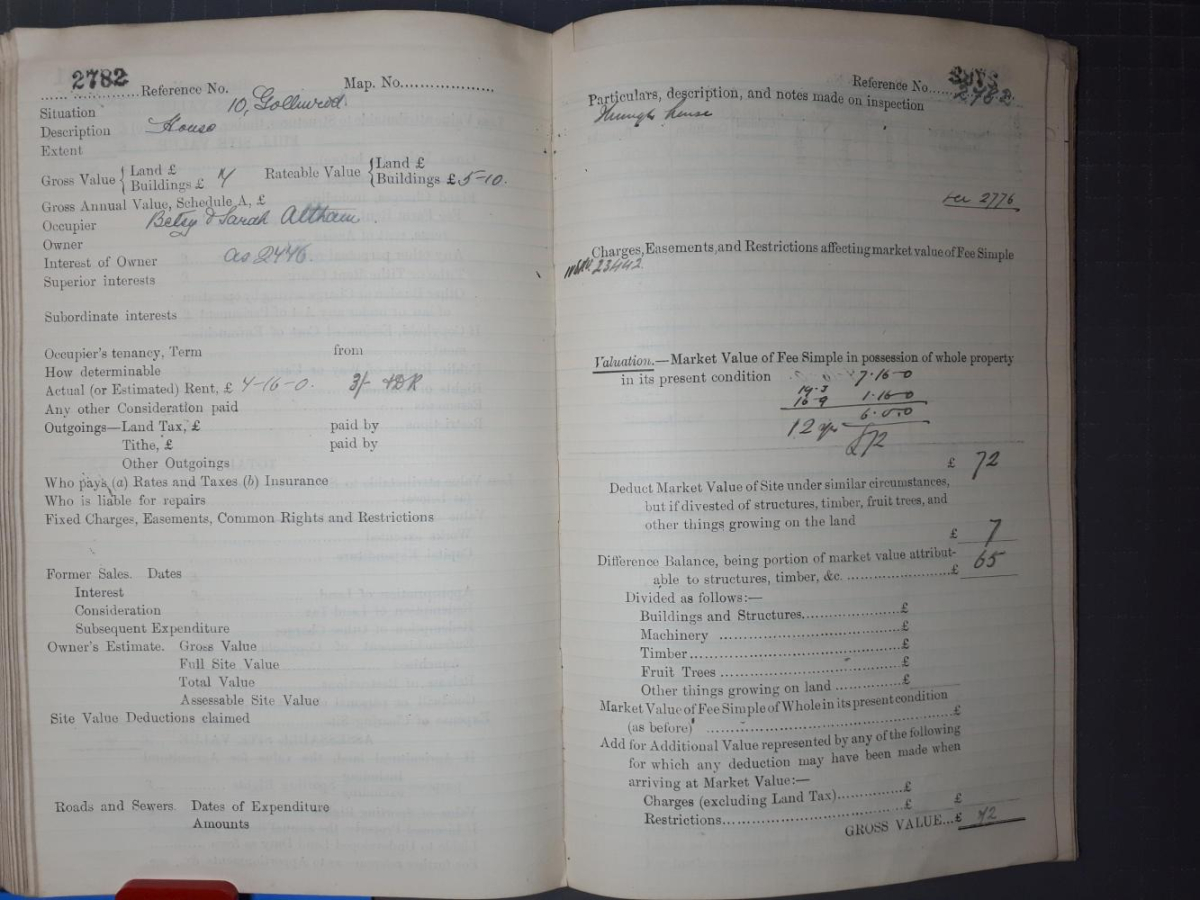 2782
Reference No. Map. No.
Situation 10,
Description House
Extent
Gross Value { Land £
Buildings £ Rateable Value { Land £
Buildings £ 5-10.
Gross Annual Value, Schedule A, £
Occupier Betsy & Sarah Altham
Owner
Interest of Owner as 2446
Superior interests
Subordinate interests
Occupier's tenancy, Term from
How determinable
Actual (or Estimated) Rent, £ 4-16-0. 3/-
Any other Consideration paid
Outgoings—Land Tax, £ paid by
Tithe, £ paid by
Other Outgoings
Who pays (a) Rates and Taxes (b) Insurance
Who is liable for repairs
Fixed Charges, Easements, Common Rights and Restrictions
Former Sales. Dates
Interest
Consideration
Subsequent Expenditure
Owner's Estimate. Gross Value
Full Site Value
Total Value
Assessable Site Value
Site Value Deductions claimed
Roads and Sewers. Dates of Expenditure
Amounts
Reference No. 2782
Particulars, description, and notes made on inspection
house
2776
Charges, Easements, and Restrictions affecting market value of Fee Simple
23442
Valuation.—Market Value of Fee Simple in possession of whole property
in its present condition 7.16-0
1.16-0
12 yrs
£72
£ 72
Deduct Market Value of Site under similar circumstances,
but if divested of structures, timber, fruit trees, and
other things growing on the land
£ 7
Difference Balance, being portion of market value attribut-
able to structures, timber, &c. £ 65
Divided as follows:—
Buildings and Structures £
Machinery £
Timber £
Fruit Trees £
Other things growing on land £
Market Value of Fee Simple of Whole in its present condition
(as before) £
Add for Additional Value represented by any of the following
for which any deduction may have been made when
arriving at Market Value:—
Charges (excluding Land Tax) £
Restrictions £ £
GROSS VALUE...£ 72